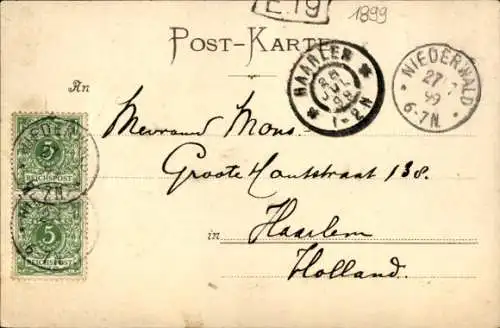 E 19
1899
POST-KARTE
HAARLEM
28
JUL
99
1-2N
NIEDERWALD
27 7
99
6-7N.
An
Mevrouw Mons.
Groote Houtstraat 138.
in Haarlem
Holland.
NIEDER
5
REICHSPOST
7N.
5
REICHSPOST